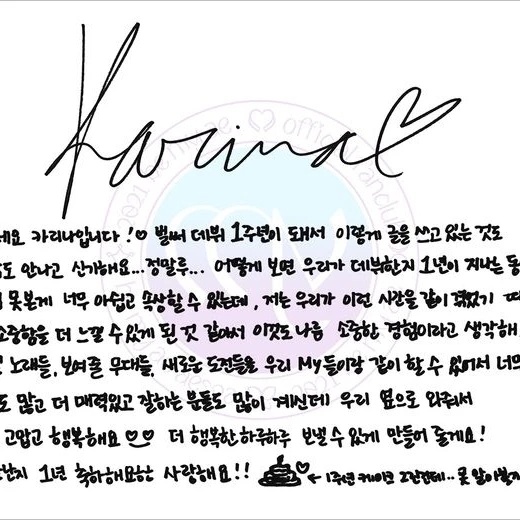 Karina♡
세요 카리나입니다!♡ 벌써 데뷔 1주년이 돼서 이렇게 글을 쓰고 있는 것도
도 안나고 신기해요...정말루... 어떻게 보면 우리가 데뷔한지 1년이 지나는 동
못본게 너무 아쉽고 속상할 수 있는데, 저는 우리가 이런 시간을 같이 겪었기
소중함을 더 느낄 수 있게 된 것 같아서 이것도 나름 소중한 경험이라고 생각해
노래들, 보여줄 무대들, 새로운 도전들을 우리 My들이랑 같이 할 수 있어서 너무
도 많고 더 매력있고 잘하는 분들도 많이 계신데 우리 옆으로 와줘서
고맙고 행복해요♡♡ 더 행복한 하루하루 보낼 수 있게 만들어 줄게요!
1년 축하해요한 사랑해요!! ← 1주년 케이크